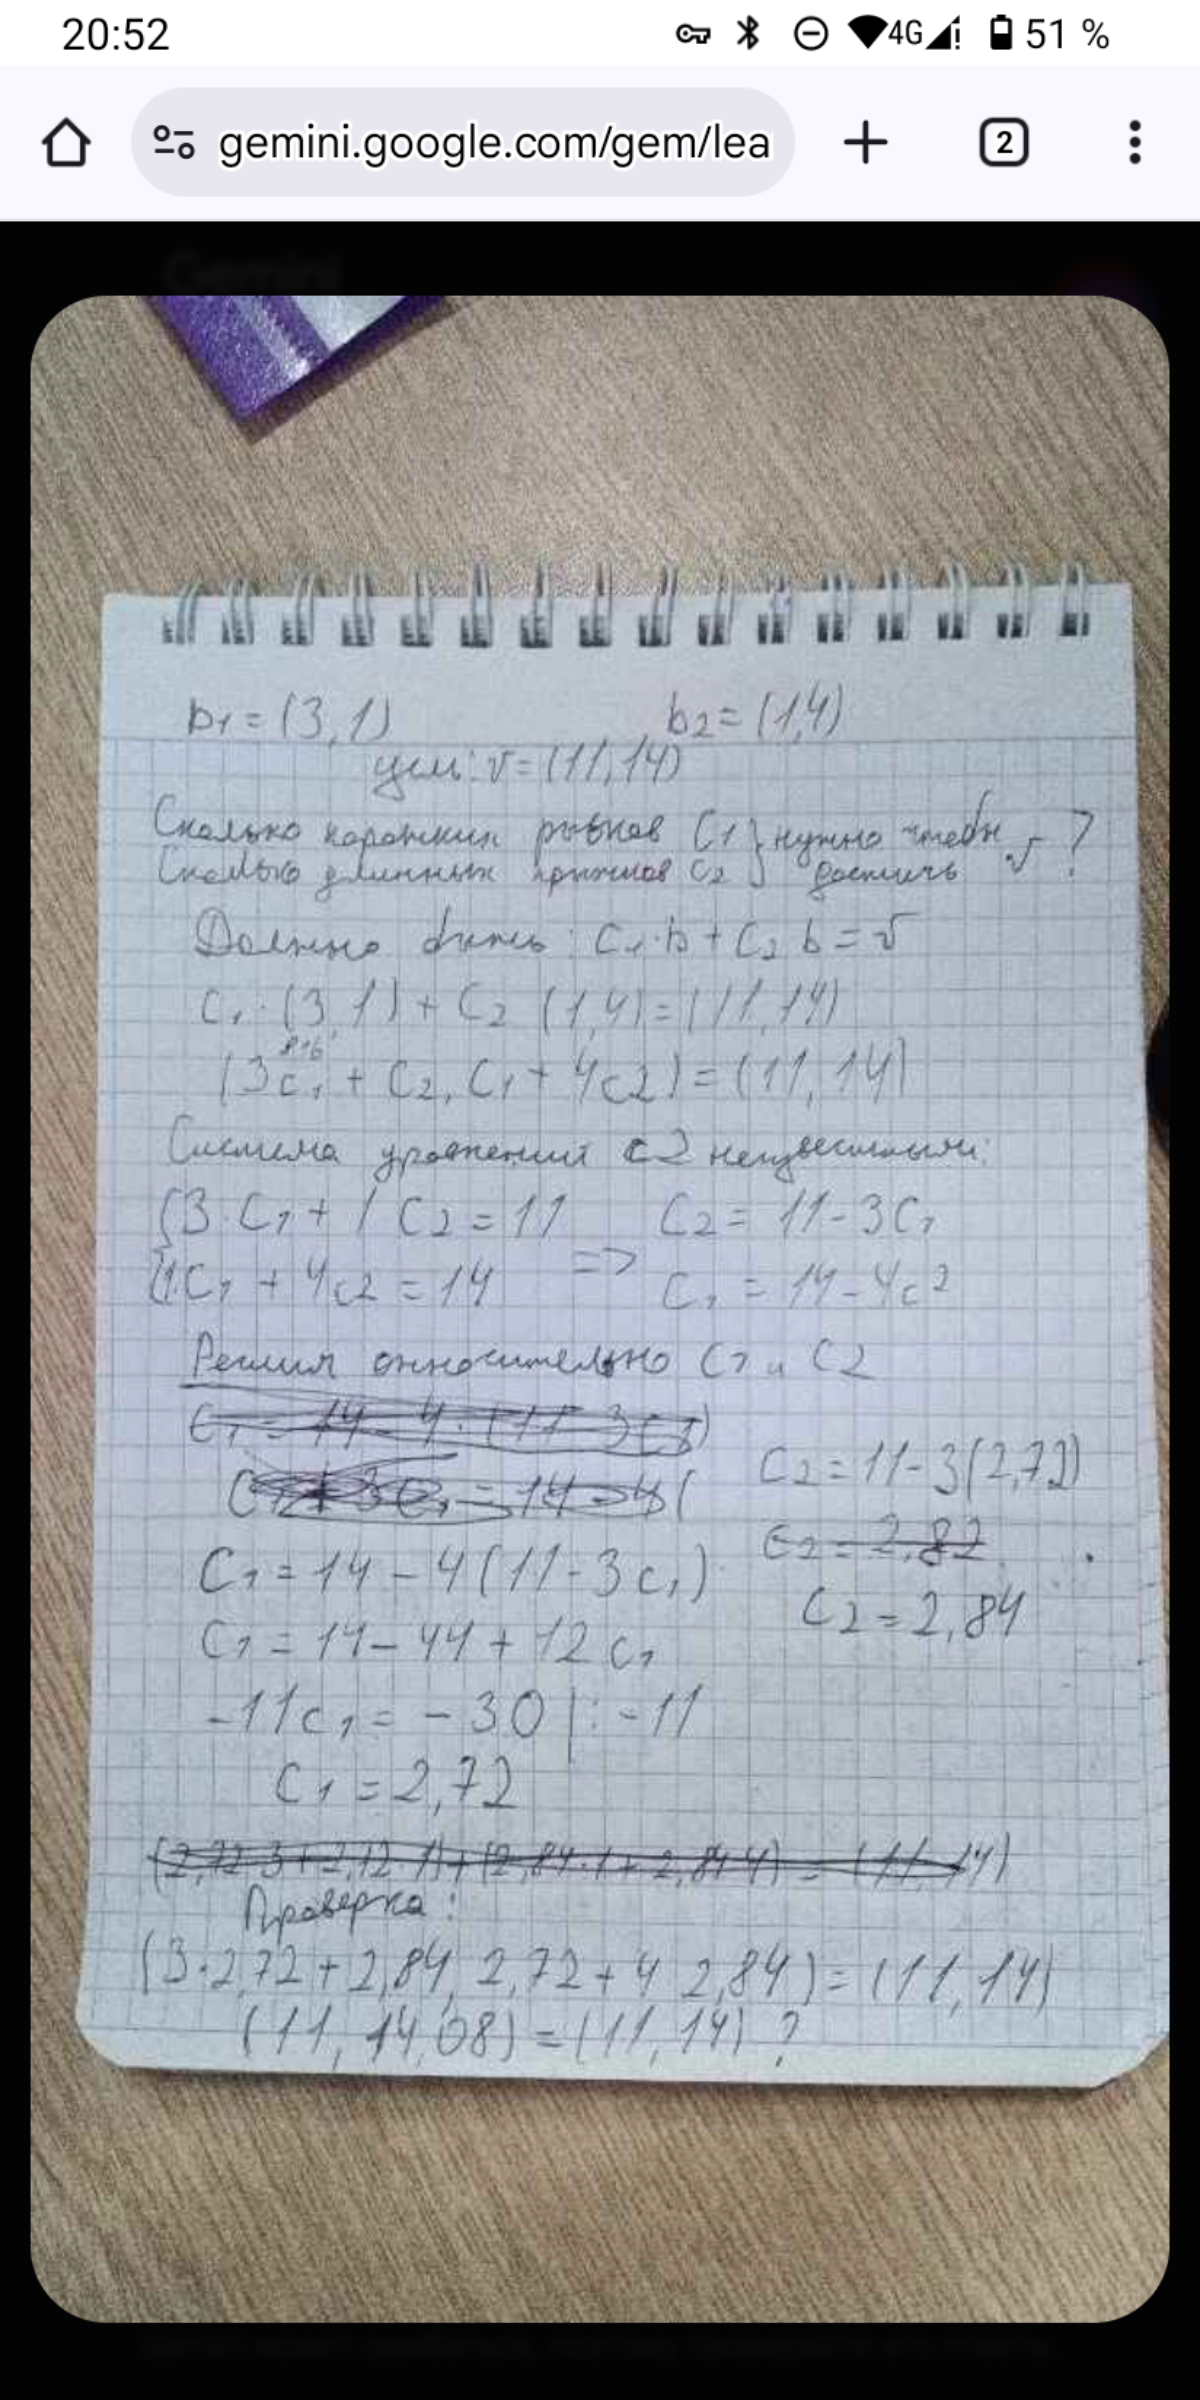 20:52
4G 51 %
gemini.google.com/gem/lea
2
b1 = (3,1) b2 = (1,4)
цель: v = (11,14)
Сколько коротких рывков C1 } нужно чтобы
Сколько длинных прыжков C2 } достичь v ?
Должно быть: C1·b + C2 b = v
C1·(3,1) + C2 (1,4) = (11,14)
(3c1 + C2, C1 + 4c2) = (11,14)
Система уравнений с 2 неизвестными:
{3·C1 + 1 C2 = 11 C2 = 11 - 3C1
{1·C1 + 4c2 = 14 => C1 = 14 - 4c2
Решим относительно C1 и C2
C1 = 14 - 4·(11 - 3C1)
C2 = 11 - 3(2,72)
C2 = 2,82
C1 = 14 - 4(11 - 3c1)
C2 = 2,84
C1 = 14 - 44 + 12c1
-11c1 = -30 |: -11
C1 = 2,72
(2,72·3 + 2,72·1) + (2,84·1 + 2,84·4) = (11,14)
Проверка:
(3·2,72 + 2,84, 2,72 + 4 2,84) = (11,14)
(11, 14,08) = (11,14) ?